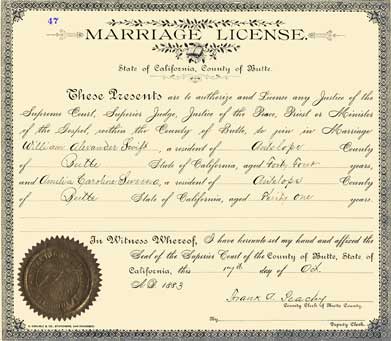 47
MARRIAGE LICENSE.
State of California, County of Butte.
These Presents are to authorize and License any Justice of the
Supreme Court, Superior Judge, Justice of the Peace, Priest or Minister
of the Gospel, within the County of Butte, to join in Marriage
William Alexander Swift, a resident of Antelope County
of Butte State of California, aged Forty Four years,
and Amelia Caroline, a resident of Antelope County
of Butte State of California, aged Thirty One years.
In Witness Whereof, I have hereunto set my hand and affixed the
Seal of the Superior Court of the County of Butte, State of
California, this day of Oct.
A.D. 1883
Frank T.
County Clerk of Butte County.
By
Deputy Clerk.